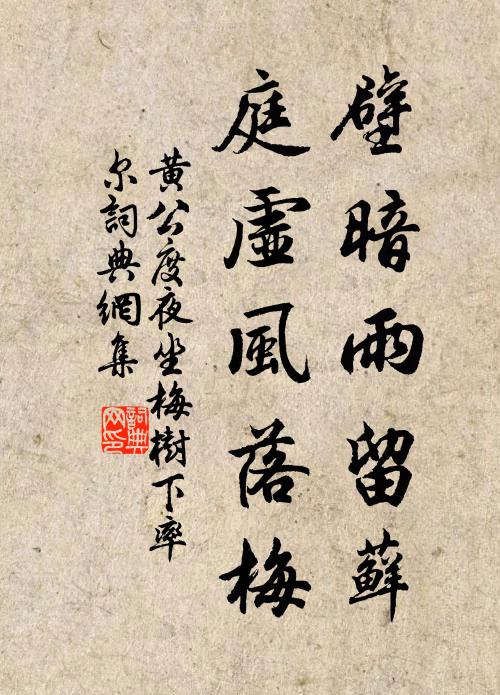 壁暗雨留蘚
庭虛風落梅
黃公度夜坐梅樹下率
尔詞典網集
詞典
网印